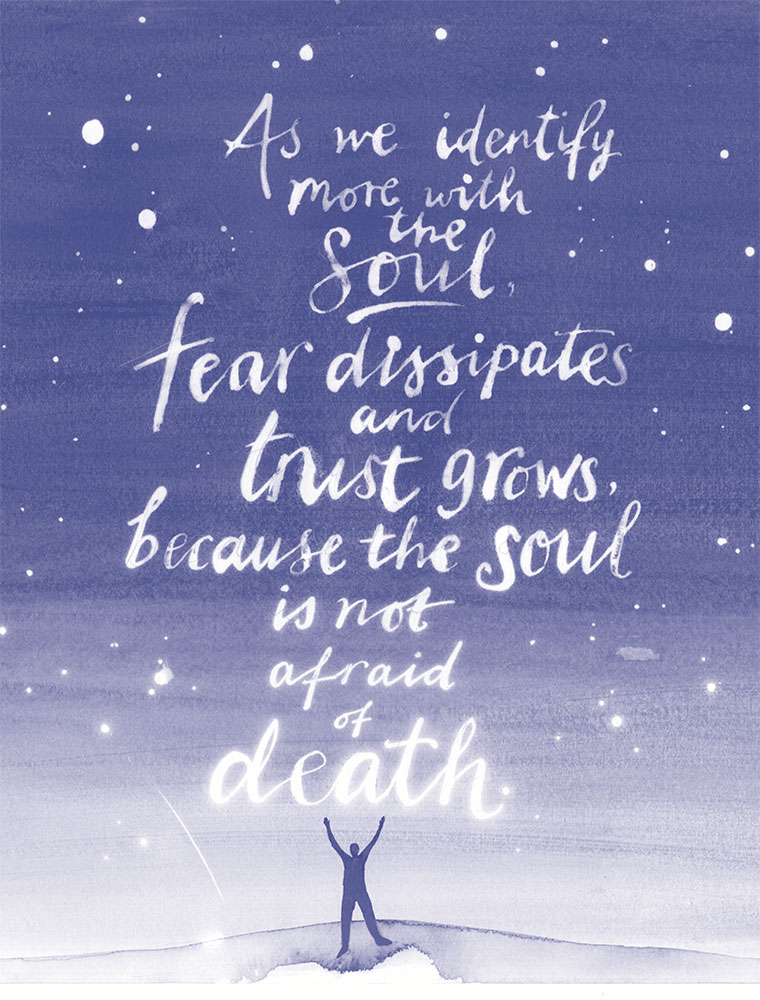 As we identify
more with
the
Soul,
fear dissipates
and
trust grows,
because the soul
is not
afraid
of
death.